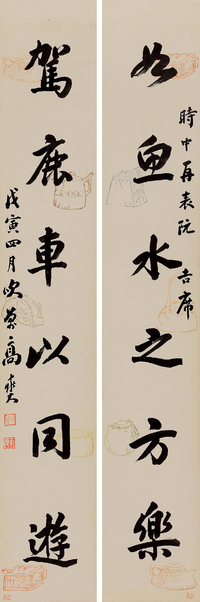 如魚水之方樂
時中再表阮吉席
駕鹿車以同遊
戊寅四月